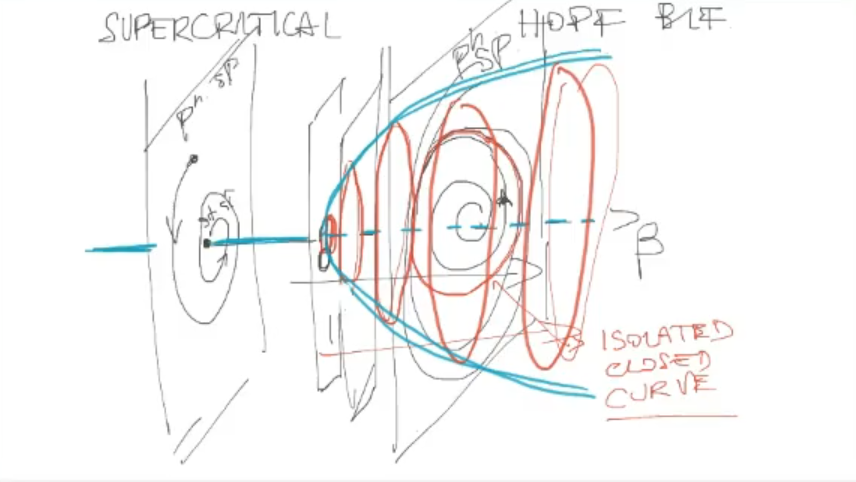 SUPERCRITICAL HOPF BIF
Pʰ SP
Pʰ SP
β
ISOLATED
CLOSED
CURVE